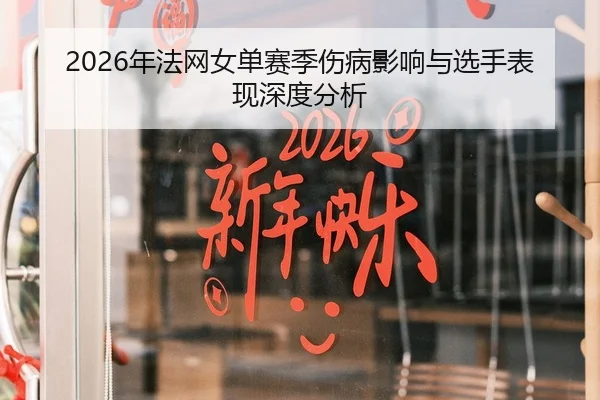 2026年法网女单赛季伤病影响与选手表
现深度分析
2026
新年快乐